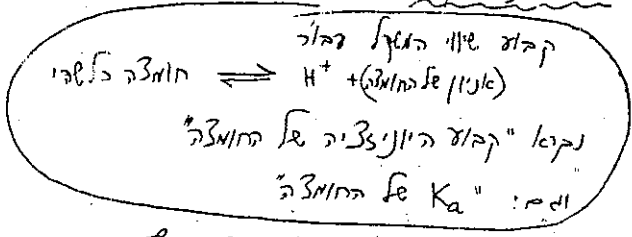 קבוע שיווי המשקל עבור
חומצה כלשהי ⇌ H⁺ + (אניון של החומצה)
נקרא "קבוע היוניזציה של החומצה"
וגם: "Kₐ של החומצה"